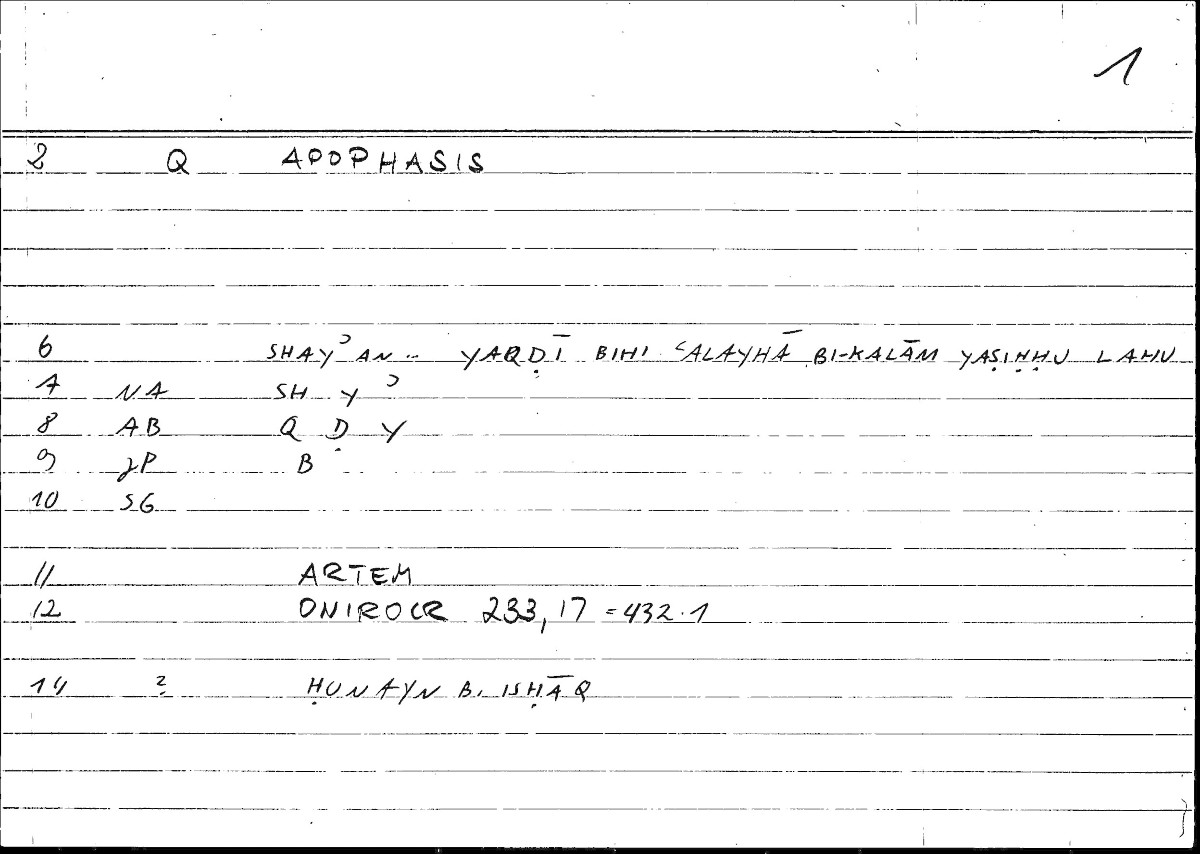 1
2 Q APOPHASIS
6 SHAYʾAN .. YAQḌĪ BIHI ʿALAYHĀ BI-KALĀM YAṢIḤḤU LAHU
7 NA SH Y ʾ
8 AB Q Ḍ Y
9 JP B
10 SG
11 ARTEM
12 ONIROCR 233,17 = 432.1
14 ? ḤUNAYN B. ISḤĀQ